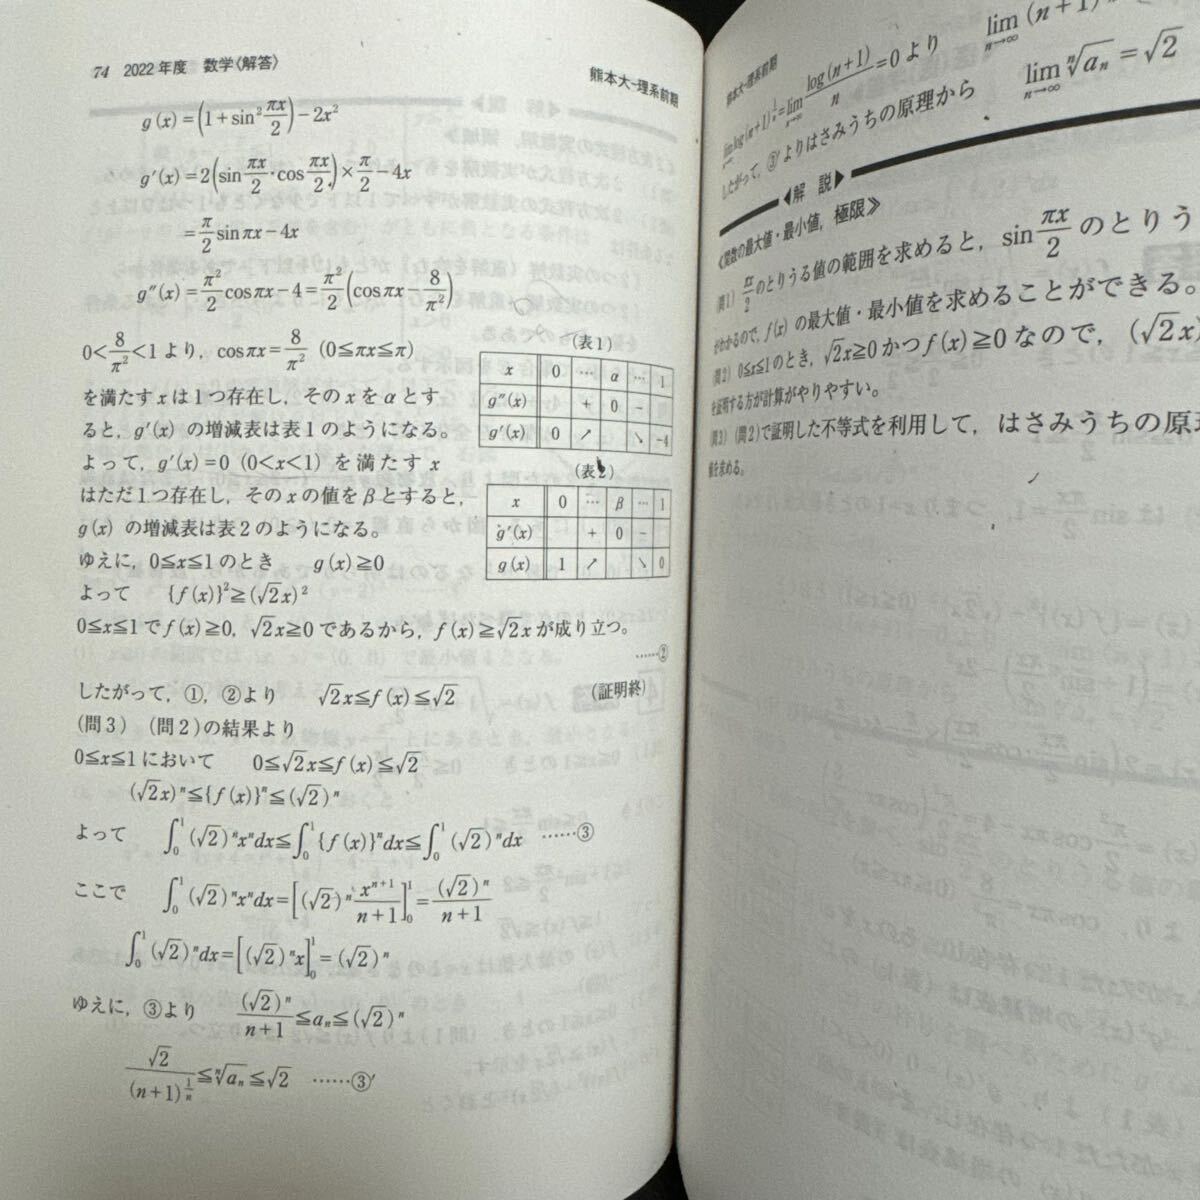 74 2022年度 数学〈解答〉
熊本大-理系前期
g(x)=(1+sin²πx/2)-2x²
g′(x)=2(sinπx/2·cosπx/2)×π/2-4x
=π/2 sinπx-4x
g″(x)=π²/2 cosπx-4=π²/2(cosπx-8/π²)
0<8/π²<1より, cosπx=8/π² (0≦πx≦π)
を満たすxは1つ存在し, そのxをαとす
ると, g′(x)の増減表は表1のようになる。
よって, g′(x)=0 (0<x<1) を満たすx
はただ1つ存在し, そのxの値をβとすると,
g(x)の増減表は表2のようになる。
(表1)
x 0 … α … 1
g″(x) + 0 −
g′(x) 0 ↗ ↘ −4
(表2)
x 0 … β … 1
g′(x) + 0 −
g(x) 1 ↗ ↘ 0
ゆえに, 0≦x≦1のとき g(x)≧0
よって {f(x)}²≧(√2x)²
0≦x≦1でf(x)≧0, √2x≧0であるから, f(x)≧√2xが成り立つ。
……②
したがって, ①, ②より √2x≦f(x)≦√2 (証明終)
(問3) (問2)の結果より
0≦x≦1において 0≦√2x≦f(x)≦√2
(√2x)ⁿ≦{f(x)}ⁿ≦(√2)ⁿ
よって ∫₀¹(√2)ⁿxⁿdx≦∫₀¹{f(x)}ⁿdx≦∫₀¹(√2)ⁿdx ……③
ここで ∫₀¹(√2)ⁿxⁿdx=[(√2)ⁿ xⁿ⁺¹/n+1]₀¹=(√2)ⁿ/n+1
∫₀¹(√2)ⁿdx=[(√2)ⁿx]₀¹=(√2)ⁿ
ゆえに, ③より (√2)ⁿ/n+1≦aₙ≦(√2)ⁿ
√2/(n+1)^(1/n)≦ⁿ√aₙ≦√2 ……③′
熊本大-理系前期
log(n+1)/n=0より lim n→∞ (n+1)
したがって, ③′よりはさみうちの原理から lim n→∞ ⁿ√aₙ=√2
◀解 説▶
≪関数の最大値・最小値, 極限≫
(問1) πx/2のとりうる値の範囲を求めると, sinπx/2のとりう
がわかるので, f(x)の最大値・最小値を求めることができる。
(問2) 0≦x≦1のとき, √2x≧0かつf(x)≧0なので, (√2x)
を証明する方が計算がやりやすい。
(問3) (問2)で証明した不等式を利用して, はさみうちの原
値を求める。